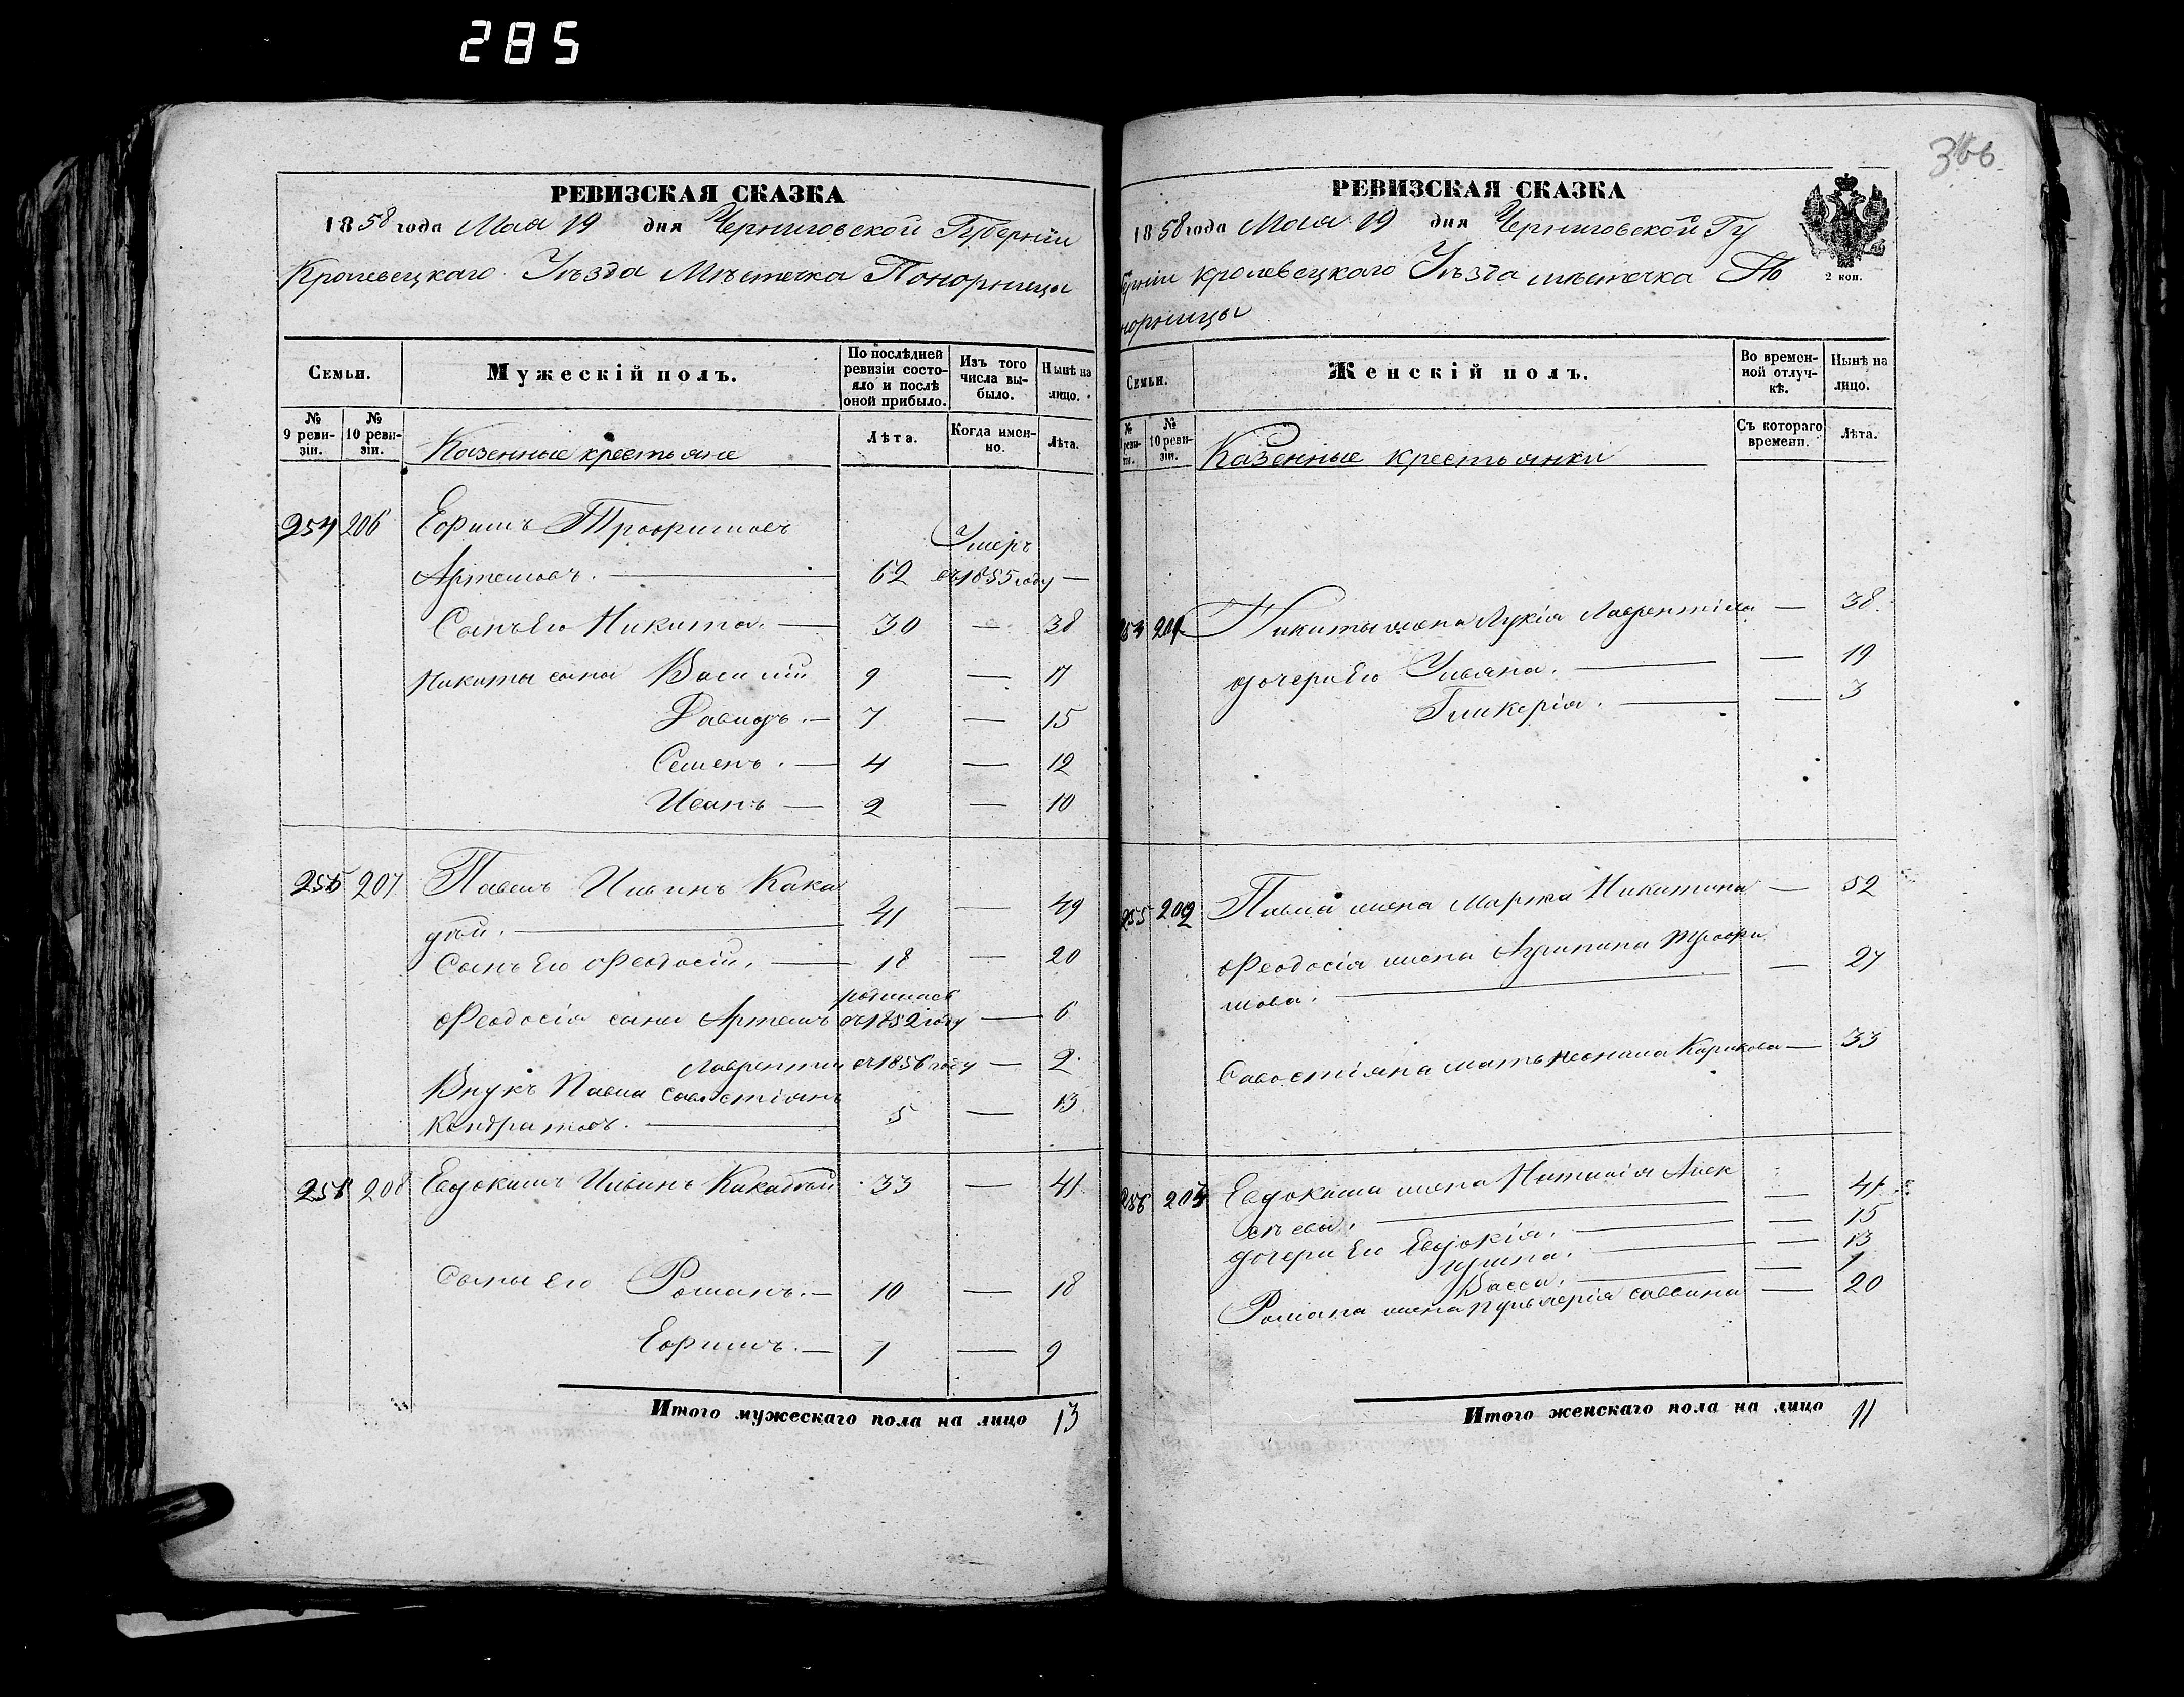 285
366
РЕВИЗСКАЯ СКАЗКА
1858 года Мая 19 дня Черниговской Губерніи
Кролевецкаго Уѣзда Мѣстечка Понорницы
Семьи. Мужескій полъ. По послѣдней ревизіи состояло и послѣ оной прибыло. Изъ того числа выбыло. Нынѣ на лицо.
№ 9 ревизіи. № 10 ревизіи. Казенные крестьяне Лѣта. Когда именно. Лѣта.
254 206 Ефимъ Трофимовъ
Умеръ
Артемовъ. — 62 въ 1855 году —
Сынъ Его Никита. — 30 — 38
Никиты сыны Василій 9 — 17
Давидъ. — 7 — 15
Семенъ. — 4 — 12
Иванъ — 2 — 10
255 207 Павелъ Ильинъ Кака
дѣй. — 41 — 49
Сынъ Его Феодосій. — 18 — 20
родились
Феодосія сыны Артемъ въ 1852 году — 6
Лаврентій въ 1856 году — 2
Внукъ Павла Савостіянъ
Кондратовъ. — 5 — 13
256 208 Евдокимъ Ильинъ Какадѣй 33 — 41
Сыны Его Романъ. — 10 — 18
Ефимъ. — 1 — 9
Итого мужескаго пола на лицо 13
РЕВИЗСКАЯ СКАЗКА
1858 года Мая 19 дня Черниговской Гу
берніи Кролевецкаго Уѣзда мѣстечка По
норницы
2 коп.
Семьи. Женскій полъ. Во временной отлучкѣ. Нынѣ на лицо.
№ 9 ревизіи. № 10 ревизіи. Казенные крестьянки Съ котораго времени. Лѣта.
Никиты жена Лукія Лаврентіева — 38
дочери Его Ульяна. — — 19
Гликерія. — — 3
255 Павла жена Марѳа Никитина — 52
Феодосія жена Агрипина Трофи
мова. — — 27
Савостіяна мать Неонила Карпова — 33
256 Евдокима жена Наталія Алек
сѣева. — — 41
дочери Его Евдокія. — — 15
Ирина. — — 13
Васса. — — 1
Романа жена Пульхерія Саввина — 20
Итого женскаго пола на лицо 11